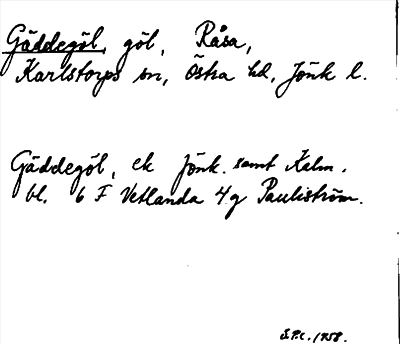 Gäddegöl, göl, Råsa,
Karlstorps sn, Östra hd, Jönk l.
Gäddegöl, ek Jönk. samt Kalm.
bl. 6 F Vetlanda 4 g Pauliström.
S.P.C. 1958.